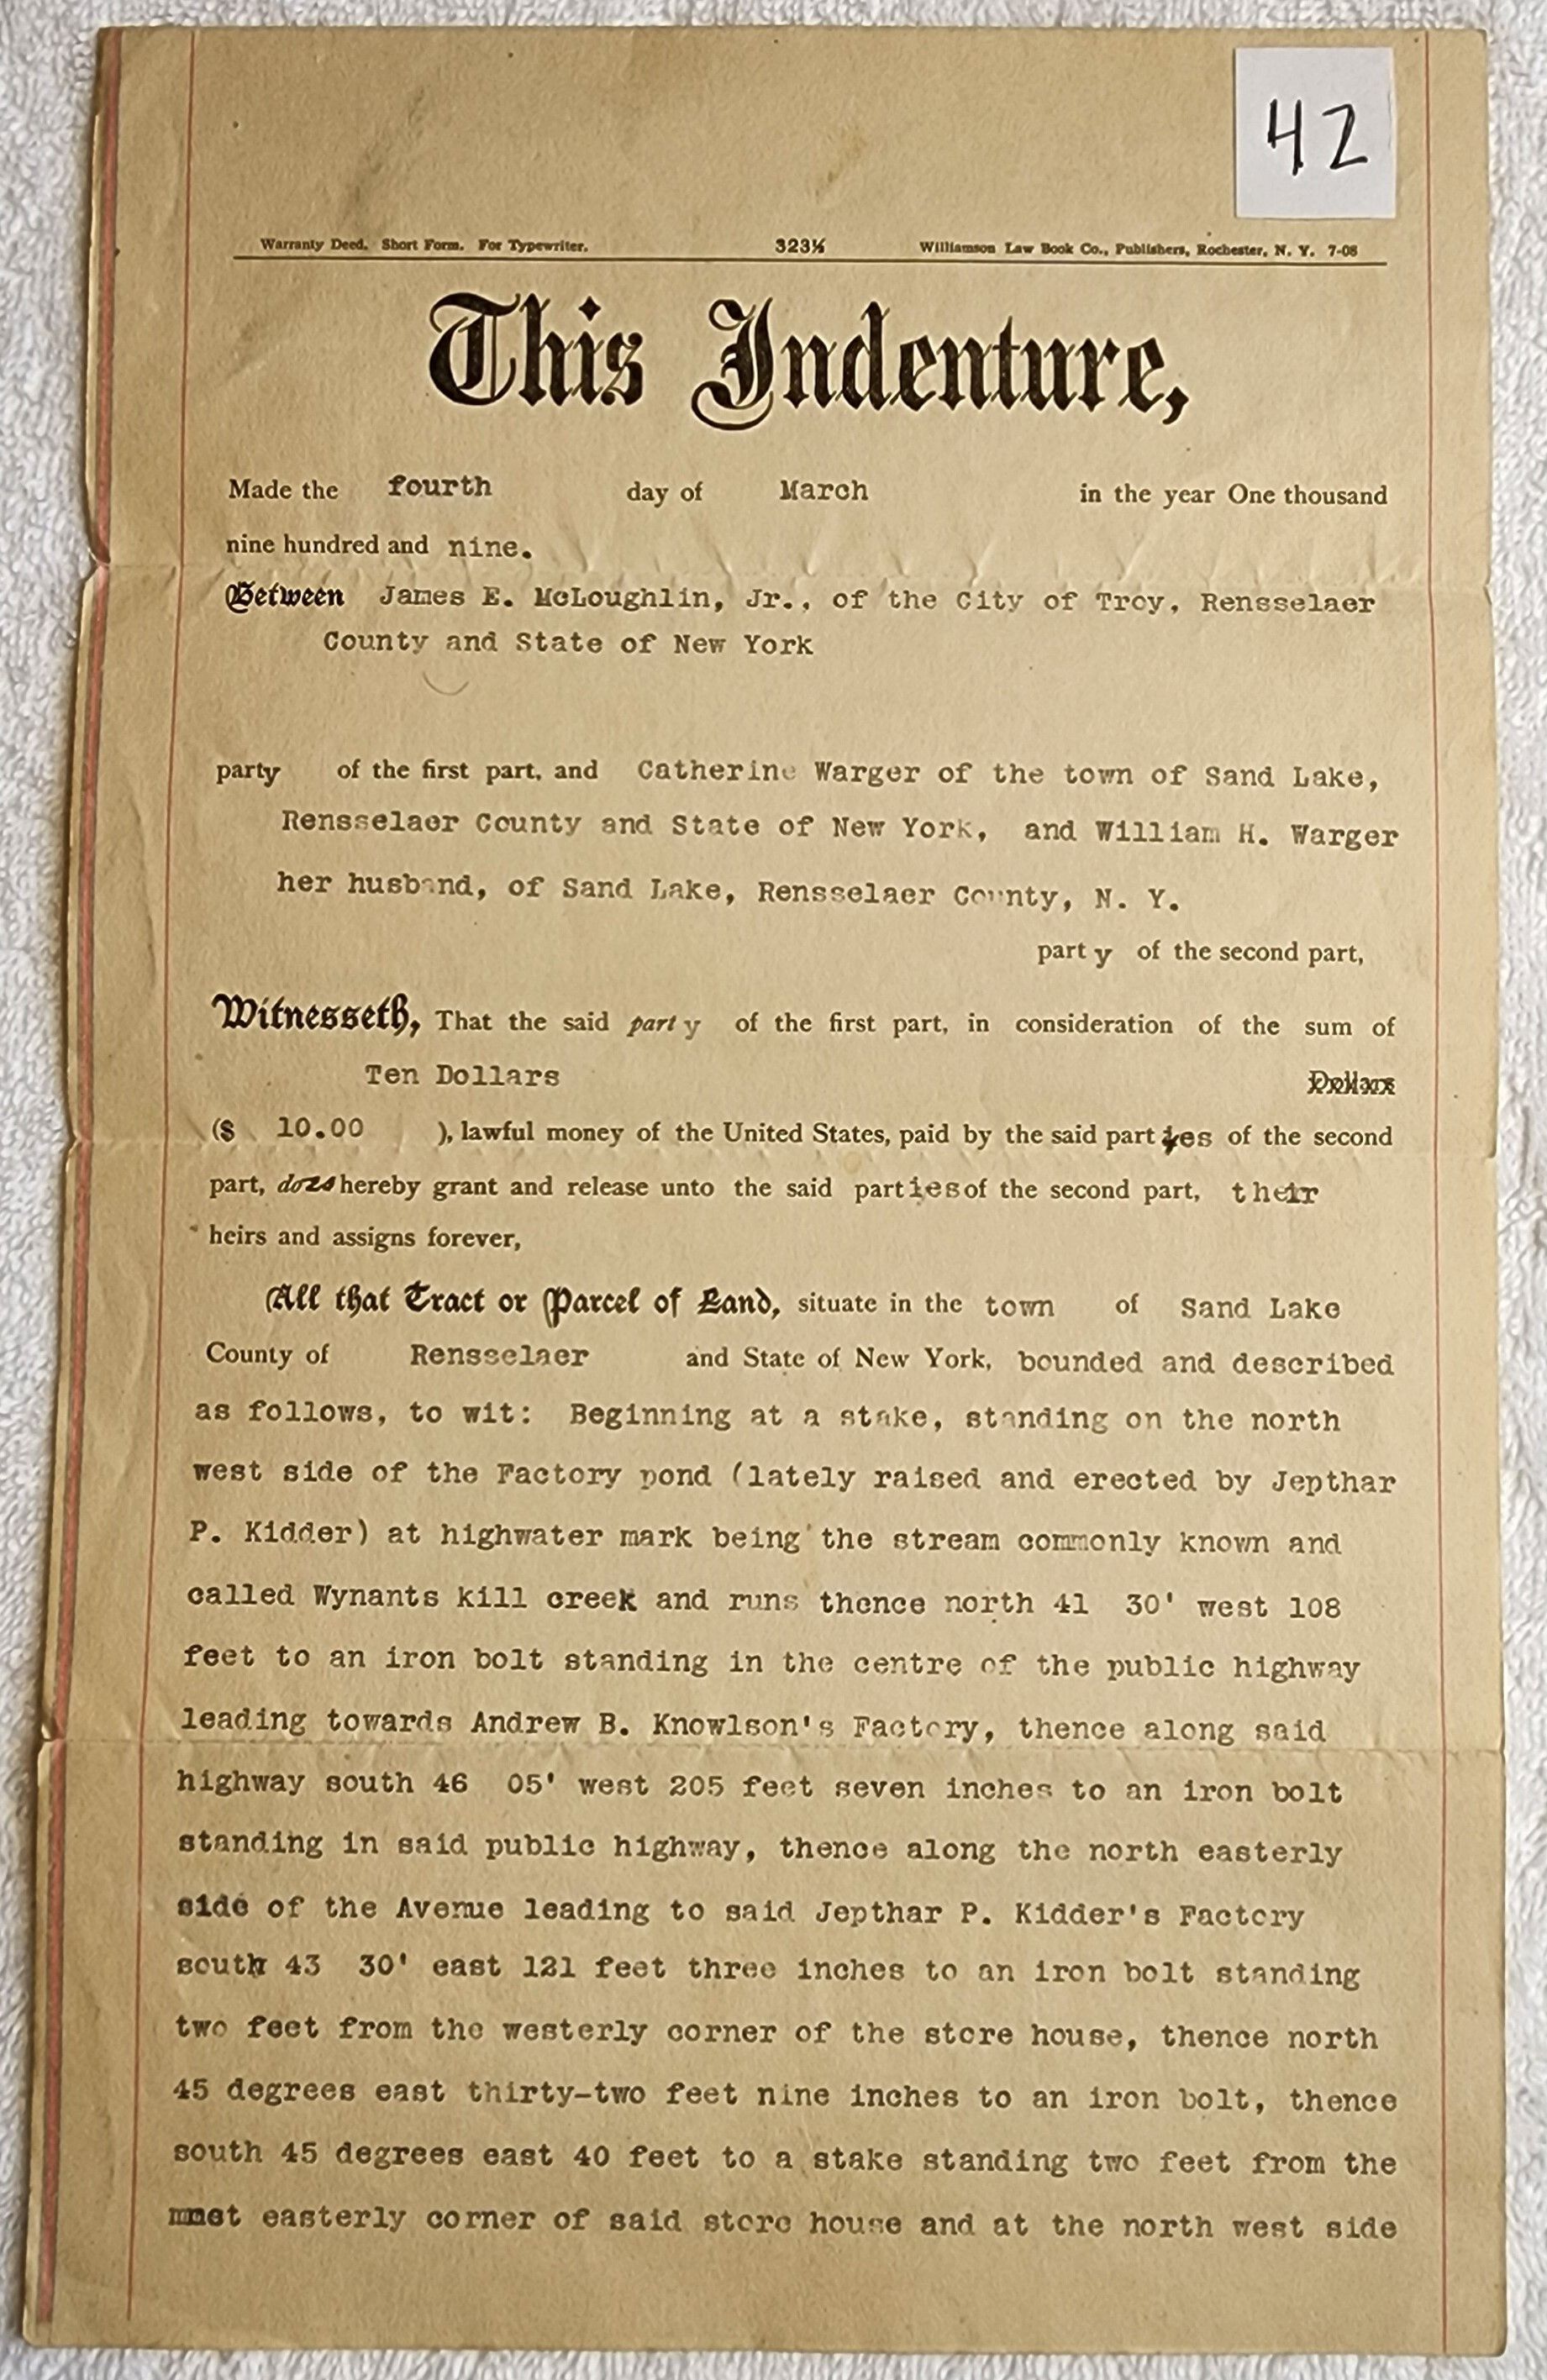 42
Warranty Deed. Short Form. For Typewriter. 323½ Williamson Law Book Co., Publishers, Rochester, N. Y. 7-08
This Indenture,
Made the fourth day of March in the year One thousand
nine hundred and nine.
Between James E. McLoughlin, Jr., of the City of Troy, Rensselaer
County and State of New York
party of the first part, and Catherine Warger of the town of Sand Lake,
Rensselaer County and State of New York, and William H. Warger
her husband, of Sand Lake, Rensselaer County, N. Y.
party of the second part,
Witnesseth, That the said party of the first part, in consideration of the sum of
Ten Dollars Dollars
($ 10.00 ), lawful money of the United States, paid by the said parties of the second
part, does hereby grant and release unto the said parties of the second part, their
heirs and assigns forever,
All that Tract or Parcel of Land, situate in the town of Sand Lake
County of Rensselaer and State of New York, bounded and described
as follows, to wit: Beginning at a stake, standing on the north
west side of the Factory pond (lately raised and erected by Jepthar
P. Kidder) at highwater mark being the stream commonly known and
called Wynants kill creek and runs thence north 41 30' west 108
feet to an iron bolt standing in the centre of the public highway
leading towards Andrew B. Knowlson's Factory, thence along said
highway south 46 05' west 205 feet seven inches to an iron bolt
standing in said public highway, thence along the north easterly
side of the Avenue leading to said Jepthar P. Kidder's Factory
south 43 30' east 121 feet three inches to an iron bolt standing
two feet from the westerly corner of the store house, thence north
45 degrees east thirty-two feet nine inches to an iron bolt, thence
south 45 degrees east 40 feet to a stake standing two feet from the
easterly corner of said store house and at the north west side